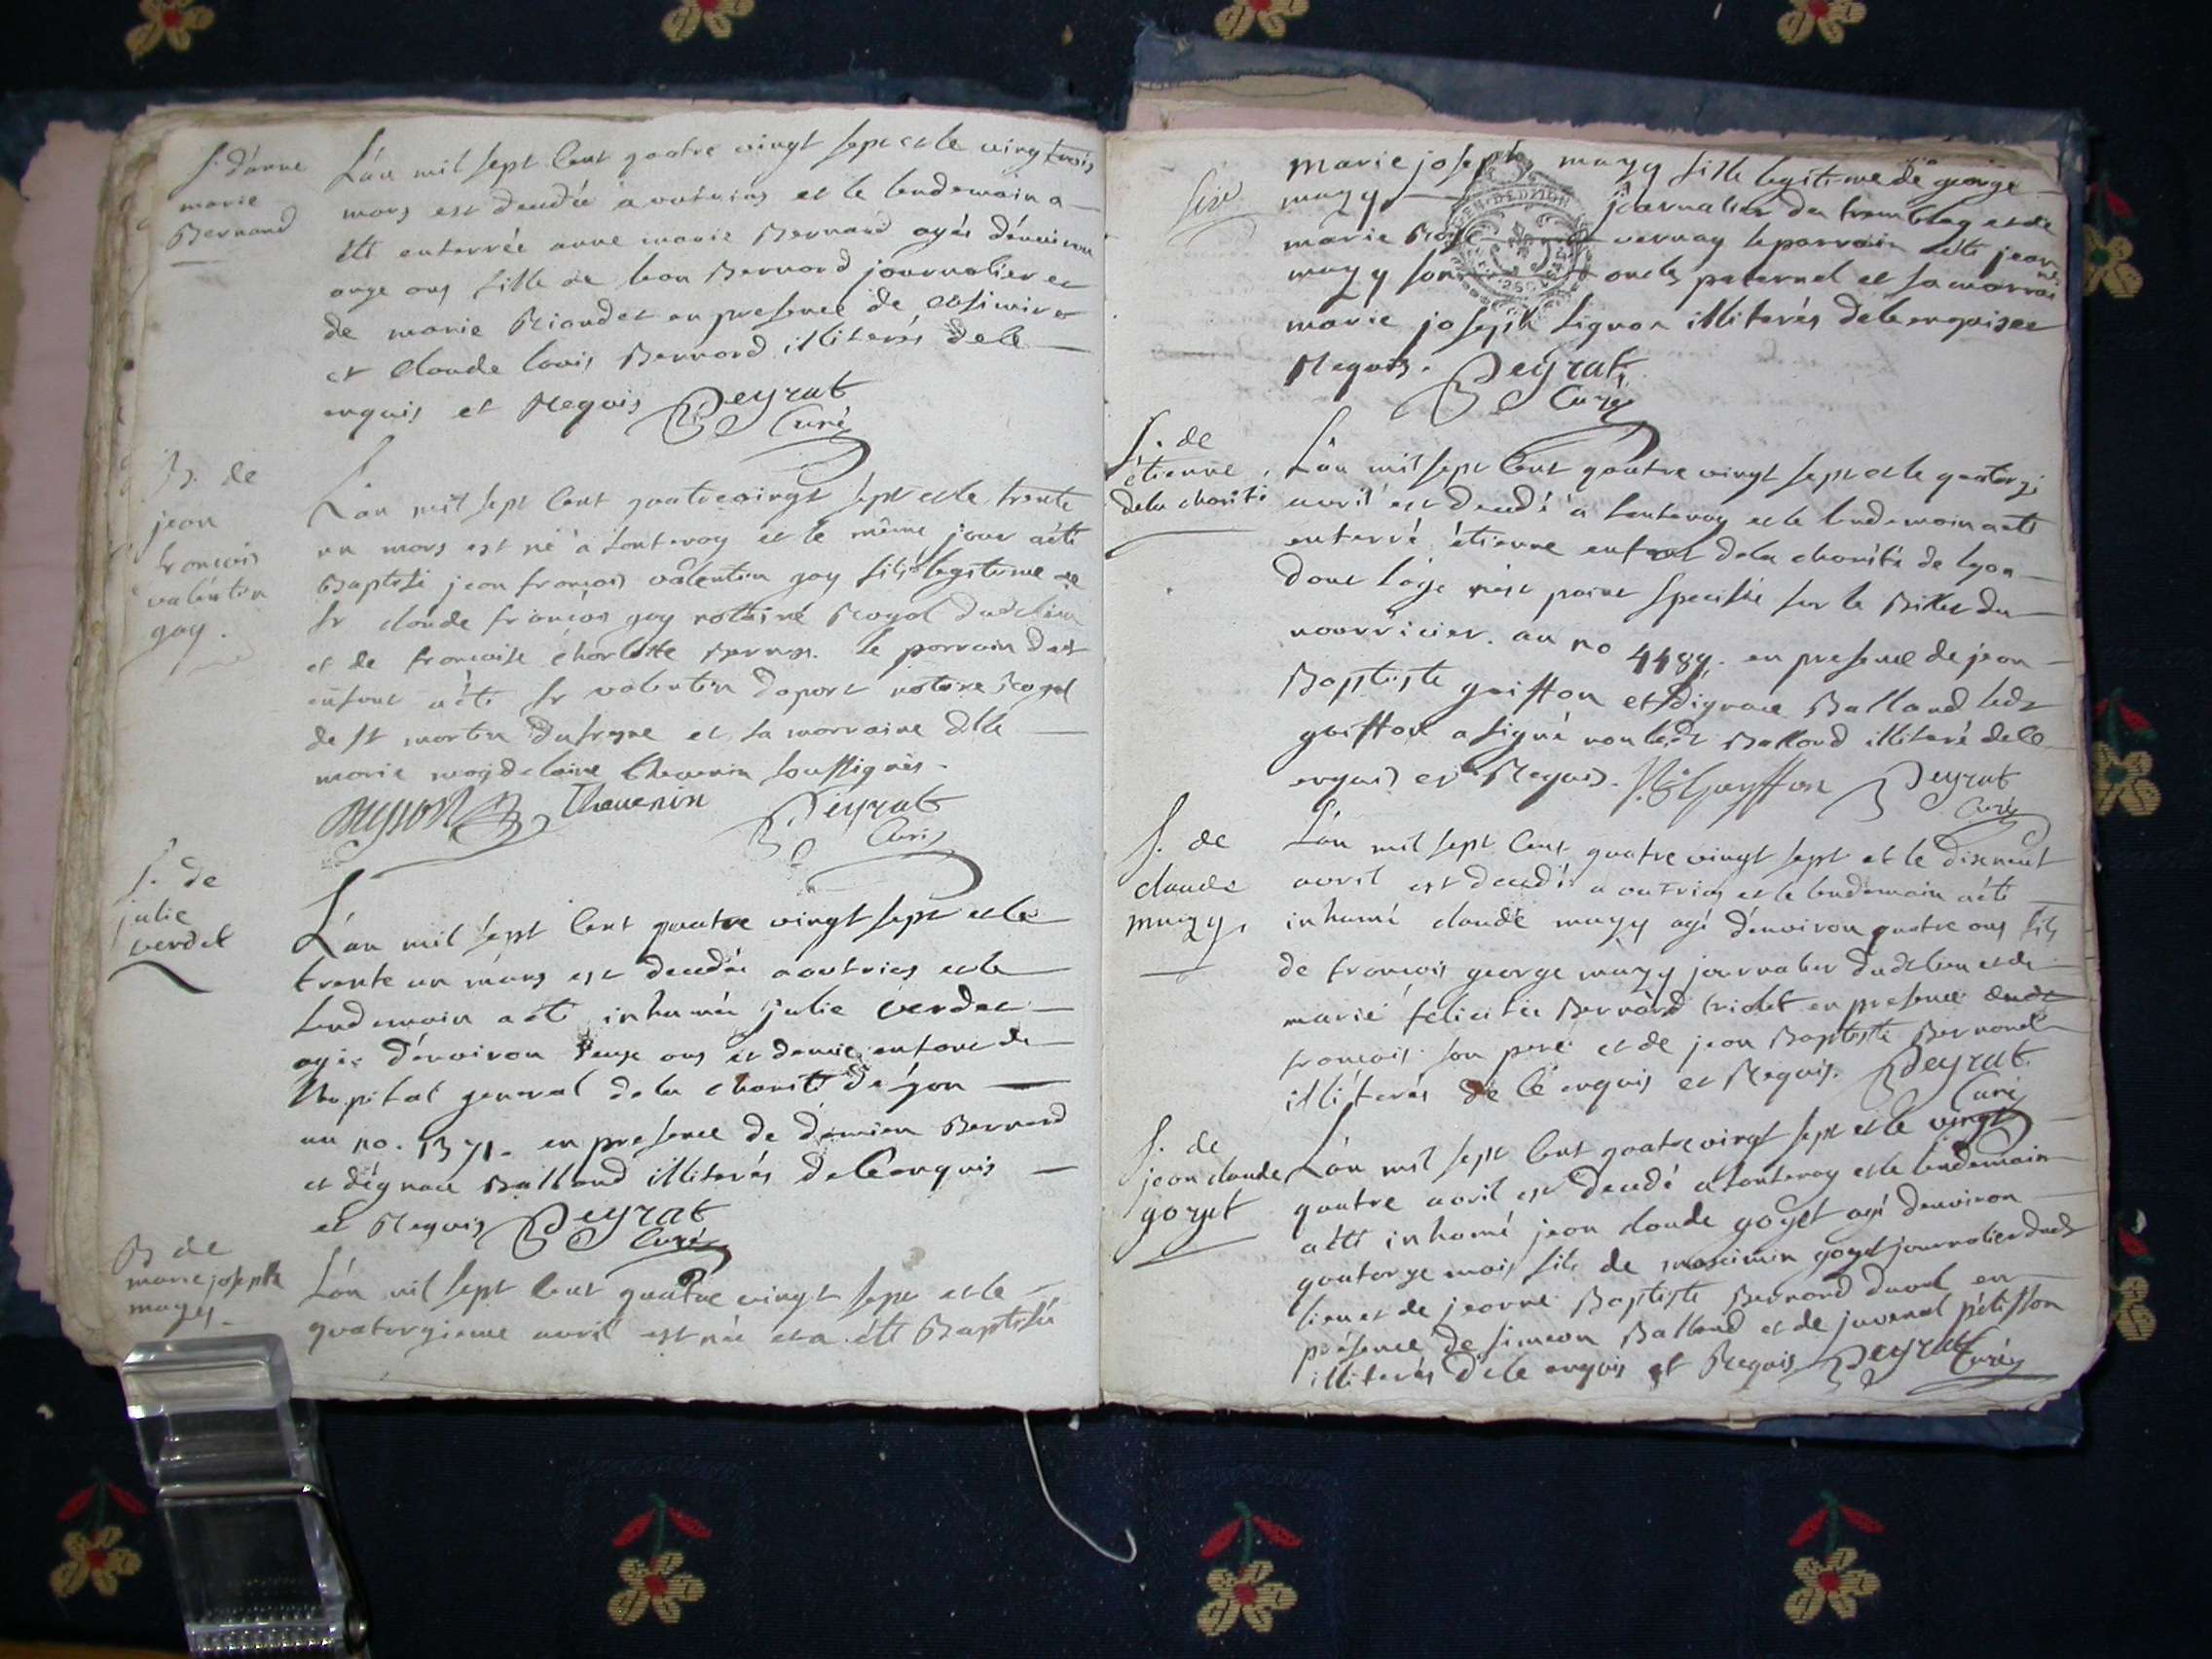 S. d'anne
marie
Bernard
L'an mil sept cent quatre vingt sept et le vingt trois
mars est decedée a outrias et le lendemain a
été enterrée anne marie Bernard agée d'environ
onze ans fille de leon Bernard journalier et
de marie Riandet en presence de
et Claude louis Bernard illiterés de ce
enquis et Requis Peyrat
Curé
B. de
jean
françois
valentin
gay.
L'an mil sept cent quatrevingt sept et le trente
un mars est né a lantenay et le même jour a été
Baptisé jean françois valentin gay fils legitime de
Sr claude françois gay nottaire Royal dudt lieu
et de françoise charlotte le parrain dudt
enfant a été Sr valentin notaire Royal
de St martin dufresne et sa marraine dlle
marie magdelaine thevenin soussignés.
Thevenin Peyrat
Curé
S. de
julie
verdet
L'an mil sept cent quatre vingt sept et le
trente un mars est decedée a outrias et le
lendemain a été inhumée julie verdet
agée d'environ ans et demie enfant de
l'hopital general de la charité de lyon
au no. 1371. en presence de damien Bernard
et d'ignace Balland illiterés de ce enquis
et Requis Peyrat
Curé
B de
marie josephe
mazy
L'an mil sept cent quatre vingt sept et le
quatorzieme avril est née et a été Baptisée
six
marie joseph mazy fille legitime de george
mazy journalier du tremblay et de
marie vernay le parrain a été jean
mazy son oncle paternel et sa marraine
marie joseph illiterés de ce enquis et
Requis. Peyrat
Curé
S. de
étienne
de la charité
L'an mil sept cent quatre vingt sept et le quatorze
avril est decedé a lantenay et le lendemain a été
enterré étienne enfant de la charité de lyon
dont l'age n'est point specifié sur le Billet du
nourricier. au no 4489. en presence de jean
Baptiste guiffon et d'ignace Balland ledt
guiffon a signé non ledt Balland illiteré de ce
enquis et Requis. Peyrat
Curé
S. de
claude
mazy
L'an mil sept cent quatre vingt sept et le dixneuf
avril est decedé a outrias et le lendemain a été
inhumé claude mazy agé d'environ quatre ans fils
de françois george mazy journalier dudt lieu et de
marie félicitée Bernard en presence dudt
françois son pere et de jean Baptiste Bernard
illiterés de ce enquis et Requis. Peyrat
Curé
S. de
jean claude
goyet
L'an mil sept cent quatre vingt sept et le vingt
quatre avril est decedé a lantenay et le lendemain
a été inhumé jean claude goyet agé d'environ
quatorze mois fils de maximin goyet journalier dudt
lieu et de jeanne Baptiste Bernard en
présence de simeon Balland et de juvenal
illiterés de ce enquis et Requis Peyrat
Curé